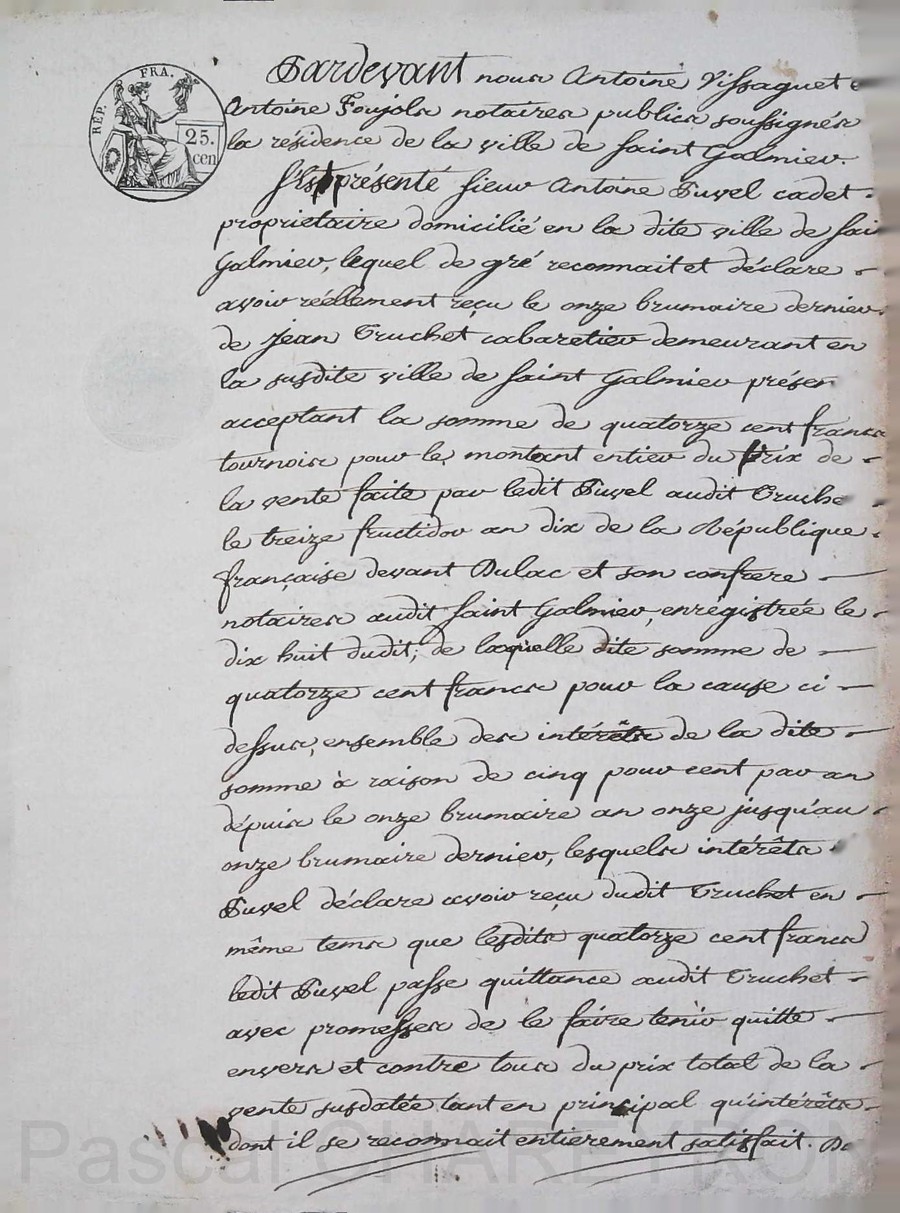 REP. FRA.
25.
cen
Pardevant nous Antoine Vissaguet e
Antoine Foujols notaires publics soussignés
la résidence de la ville de Saint Galmier.
S'est présenté sieur Antoine Buvel cadet
proprietaire domicilié en la dite ville de Sain
Galmier, lequel de gré reconnait et déclare
avoir réellement reçu le onze brumaire dernier
de Jean Truchet cabaretier demeurant en
la susdite ville de Saint Galmier présen
acceptant la somme de quatorze cent francs
tournois pour le montant entier du prix de
la vente faite par ledit Buvel audit Truche
le treize fructidor an dix de la République
française devant Dulac et son confrere
notaires audit Saint Galmier, enrégistrée le
dix huit dudit; de laquelle dite somme de
quatorze cent francs pour la cause ci
dessus, ensemble des intérêts de la dite
somme à raison de cinq pour cent par an
dépuis le onze brumaire an onze jusqu'au
onze brumaire dernier, lesquels intérêts
Buvel déclare avoir reçu dudit Truchet en
même tems que lesdits quatorze cent francs
ledit Buvel passe quittance audit Truchet
avec promesses de le faire tenir quitte
envers et contre tous du prix total de la
vente susdatée tant en principal qu'intérêts
dont il se reconnait entierement satisfait. De
Pascal CHAREYRON